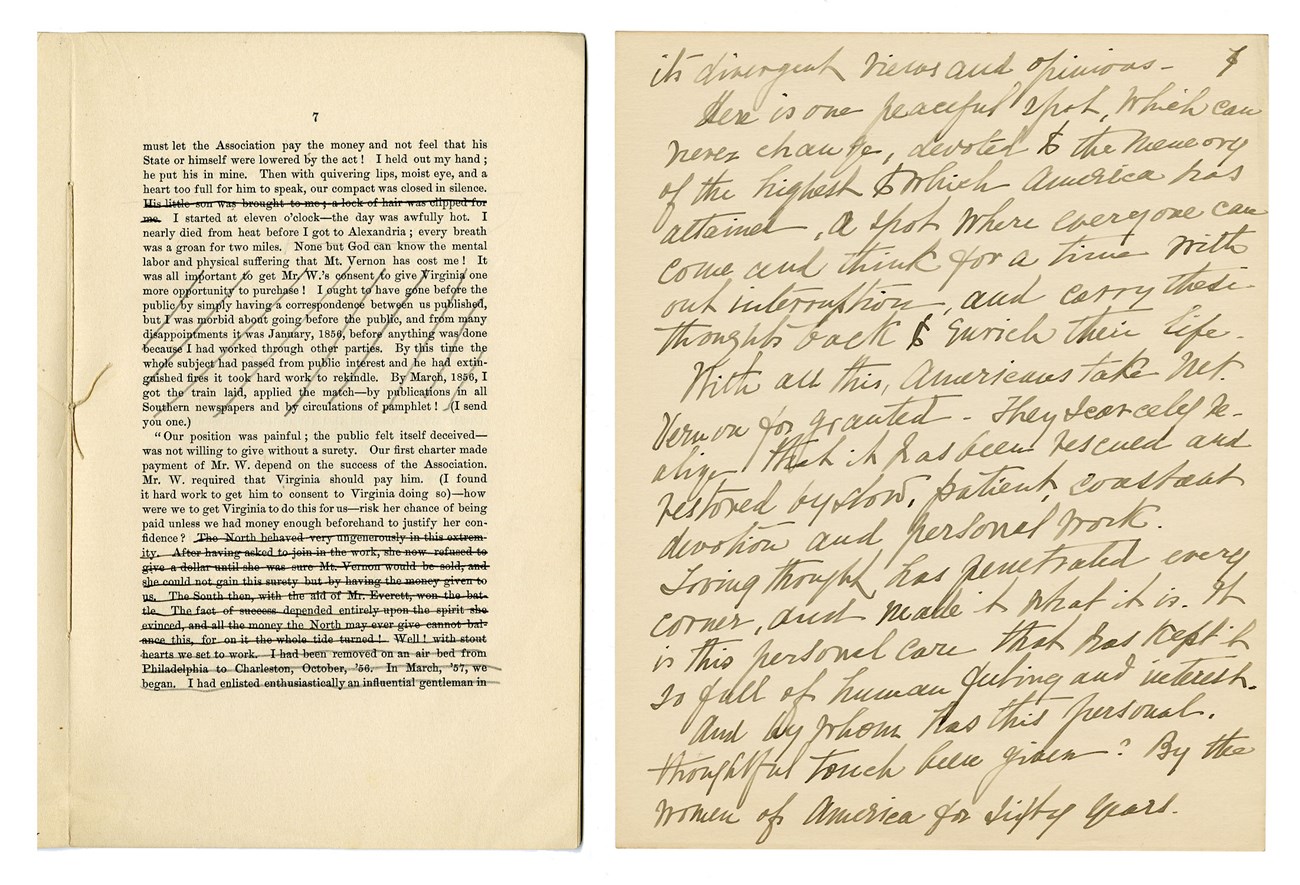 7
must let the Association pay the money and not feel that his
State or himself were lowered by the act! I held out my hand;
he put his in mine. Then with quivering lips, moist eye, and a
heart too full for him to speak, our compact was closed in silence.
His little son was brought to me; a lock of hair was clipped for
me. I started at eleven o'clock—the day was awfully hot. I
nearly died from heat before I got to Alexandria; every breath
was a groan for two miles. None but God can know the mental
labor and physical suffering that Mt. Vernon has cost me! It
was all important to get Mr. W.'s consent to give Virginia one
more opportunity to purchase! I ought to have gone before the
public by simply having a correspondence between us published,
but I was morbid about going before the public, and from many
disappointments it was January, 1856, before anything was done
because I had worked through other parties. By this time the
whole subject had passed from public interest and he had extin-
guished fires it took hard work to rekindle. By March, 1856, I
got the train laid, applied the match—by publications in all
Southern newspapers and by circulations of pamphlet! (I send
you one.)
"Our position was painful; the public felt itself deceived—
was not willing to give without a surety. Our first charter made
payment of Mr. W. depend on the success of the Association.
Mr. W. required that Virginia should pay him. (I found
it hard work to get him to consent to Virginia doing so)—how
were we to get Virginia to do this for us—risk her chance of being
paid unless we had money enough beforehand to justify her con-
fidence? The North behaved very ungenerously in this extrem-
ity. After having asked to join in the work, she now refused to
give a dollar until she was sure Mt. Vernon would be sold, and
she could not gain this surety but by having the money given to
us. The South then, with the aid of Mr. Everett, won the bat-
tle. The fact of success depended entirely upon the spirit she
evinced, and all the money the North may ever give cannot bal-
ance this, for on it the whole tide turned! Well! with stout
hearts we set to work. I had been removed on an air bed from
Philadelphia to Charleston, October, '56. In March, '57, we
began. I had enlisted enthusiastically an influential gentleman in
its divergent views and opinions -
Here is one peaceful spot, which can
never change, devoted to the memory
of the highest to which America has
attained, a spot where everyone can
come and think for a time with
out interruption, and carry these
thoughts back & enrich their life.
With all this, Americans take Mt.
Vernon for granted - They scarcely re-
alize that it has been rescued and
restored by slow, patient, constant
devotion and personal work.
Loving thought has penetrated every
corner, and made it what it is. It
is this personal care that has kept it
so full of human feeling and interest.
And by whom has this personal,
thoughtful touch been given? By the
women of America for sixty years.